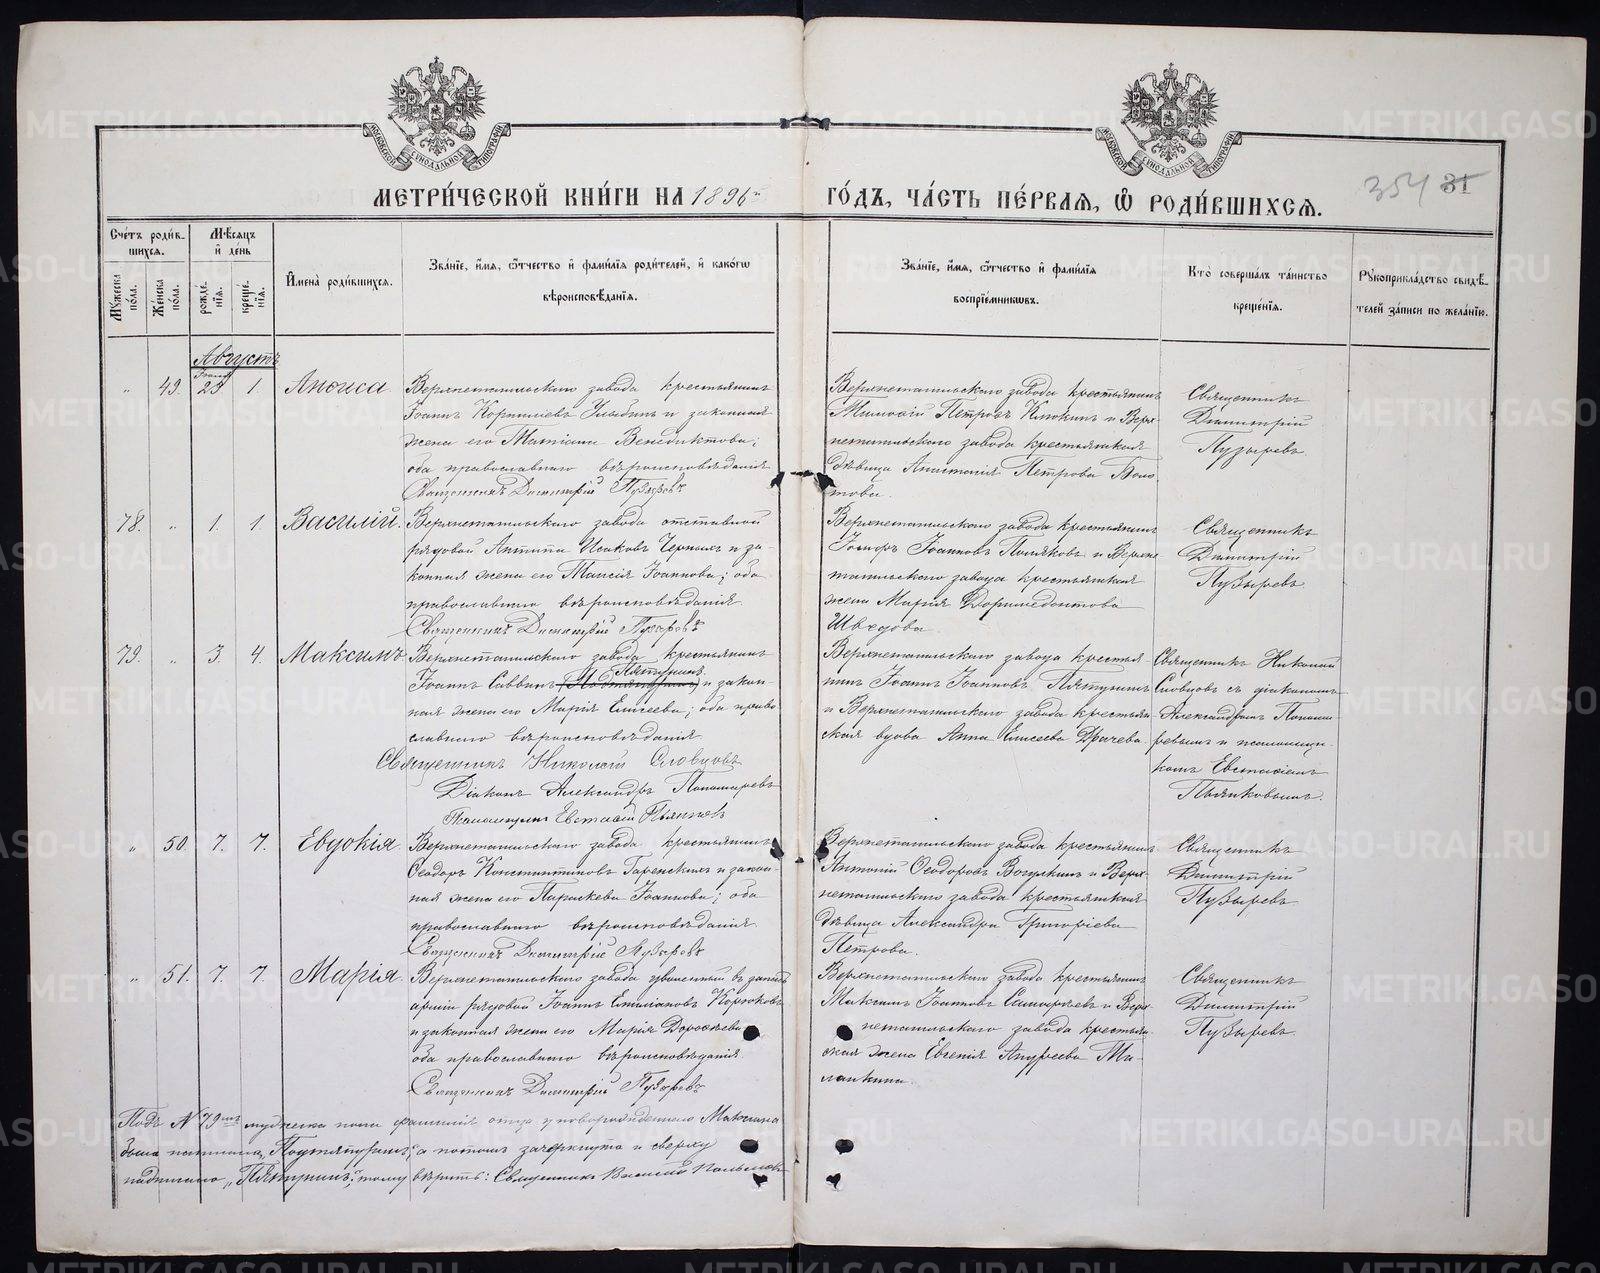 МЕТРИ́ЧЕСКОЙ КНИ́ГИ НА 1896й
ГО́ДЪ, ЧА́СТЬ ПЕ́РВАѦ, Ѽ РОДИ́ВШИХСѦ.
354 31
МОСКОВСКОЙ СѴНОДАЛЬНОЙ ТИПОГРАФІИ
МОСКОВСКОЙ СѴНОДАЛЬНОЙ ТИПОГРАФІИ
Сче́тъ роди́в-
шихсѧ.
Мꙋжеска по́ла.
Же́нска по́ла.
Мѣ́сѧцъ
и҆ де́нь
рожде́нїѧ.
креще́нїѧ.
И҆мена̀ роди́вшихсѧ.
Зва́нїе, и҆́мѧ, ѻ҆́тчество и҆ фами́лїѧ роди́телей, и҆ како́гѡ
вѣроисповѣ́данїѧ.
Зва́нїе, и҆́мѧ, ѻ҆́тчество и҆ фами́лїѧ
воспрїе́мникѡвъ.
Кто̀ соверша́лъ та́инство
креще́нїѧ.
Рꙋкоприкла́дство свидѣ́-
телей за́писи по жела́нїю.
Августъ
„ 49. 25 1. Анѳиса
Верхнетагильскаго завода крестьянинъ
Іоаннъ Корнилiевъ и законная
жена его Венедиктова;
оба православнаго вѣроисповѣданія.
Священникъ Димитрій Пузыревъ
Верхнетагильскаго завода крестьянинъ
Петровъ и Верх-
нетагильскаго завода крестьянская
дѣвица Анастасія Петрова Боло-
това.
Священникъ
Димитрій
Пузыревъ.
78. „ 1. 1. Василій.
Верхнетагильскаго завода отставной
рядовой Антипа Исаковъ Черныхъ и за-
конная жена его Таисія Іоаннова; оба
православнаго вѣроисповѣданія.
Священникъ Димитрій Пузыревъ
Верхнетагильскаго завода крестьянинъ
Іоанновъ Поляковъ и Верхне-
тагильскаго завода крестьянская
жена Марія Дормедонтова
Шведова.
Священникъ
Димитрій
Пузыревъ.
79. „ 3. 4. Максимъ
Верхнетагильскаго завода крестьянинъ
Пятунинъ.
Іоаннъ Саввинъ и закон-
ная жена его Марія Елисеева; оба право-
славнаго вѣроисповѣданія.
Священникъ Николай Словцовъ
Діаконъ Александръ Пономаревъ
Псаломщикъ Евстафій Пьянковъ
Верхнетагильскаго завода крестья-
нинъ Іоаннъ Іоанновъ Пятунинъ
и Верхнетагильскаго завода крестьян-
ская вдова Анна Елисеева Драчева.
Священникъ Николай
Словцовъ съ діакономъ
Александромъ Понома-
ревымъ и псаломщи-
комъ Евстафіемъ
Пьянковымъ.
„ 50. 7. 7. Евдокія.
Верхнетагильскаго завода крестьянинъ
Ѳеодоръ Константиновъ Гаренскихъ и закон-
ная жена его Параскева Іоаннова; оба
православнаго вѣроисповѣданія.
Священникъ Димитрій Пузыревъ
Верхнетагильскаго завода крестьянинъ
Антоній Ѳеодоровъ Вогулкинъ и Верх-
нетагильскаго завода крестьянская
дѣвица Александра Григоріева
Петрова.
Священникъ
Димитрій
Пузыревъ.
„ 51. 7. 7. Марія.
Верхнетагильскаго завода уволенный въ запасъ
арміи рядовой Іоаннъ Емиліановъ Корюковъ
и законная жена его Марія Дороѳеева
оба православнаго вѣроисповѣданія.
Священникъ Димитрій Пузыревъ
Верхнетагильскаго завода крестьянинъ
Максимъ Іоанновъ и Верх-
нетагильскаго завода крестьян-
ская жена Евгенія Андреева Ма-
лахина.
Священникъ
Димитрій
Пузыревъ.
Подъ №79мъ мужска пола фамилія отца у новорожденнаго Максима
была написана а потомъ зачеркнута и сверху
надписано „Пятунинъ“; тому вѣрить: Священникъ Василій
METRIKI.GASO-URAL.RU